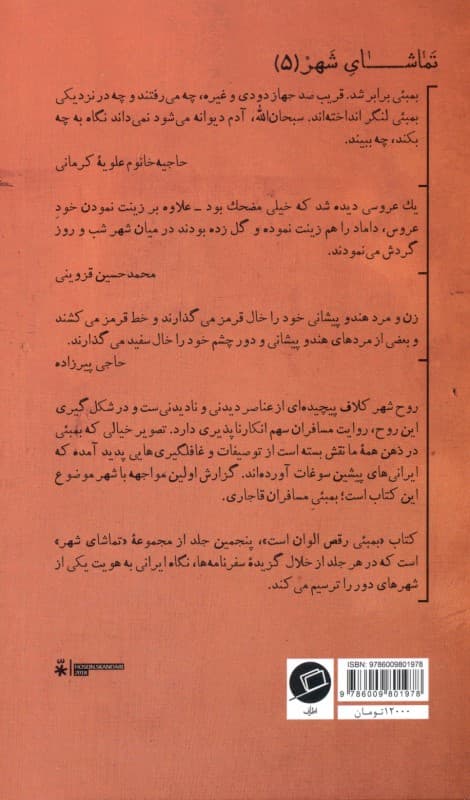 تَماشایِ شَهرْ (۵)
بمبئی برابر شد. قریب صد جهاز دودی و غیره، چه می‌رفتند و چه در نزدیکی
بمبئی لنگر انداخته‌اند. سبحان‌الله، آدم دیوانه می‌شود نمی‌داند نگاه به چه
بکند، چه ببیند.
حاجیه خانوم علویهٔ کرمانی
یك عروسی دیده شد که خیلی مضحك بود ــ علاوه بر زینت نمودن خودِ
عروس، داماد را هم زینت نموده و گل زده بودند در میان شهر شب و روز
گردش می‌نمودند.
محمدحسین قزوینی
زن و مرد هندو پیشانی خود را خال قرمز می گذارند و خط قرمز می کشند
و بعضی از مردهای هندو پیشانی و دور چشم خود را خال سفید می گذارند.
حاجی پیرزاده
روح شهر کلاف پیچیده‌ای از عناصر دیدنی و نادیدنی‌ست و در شکل گیری
این روح، روایت مسافران سهم انکارناپذیری دارد. تصویر خیالی که بمبئی
در ذهن همهٔ ما نقش بسته است از توصیفات و غافلگیری‌هایی پدید آمده که
ایرانی‌های پیشین سوغات آورده‌اند. گزارش اولین مواجهه با شهر موضوع
این کتاب است؛ بمبئیِ مسافران قاجاری.
کتاب «بمبئی رقص الوان است»، پنجمین جلد از مجموعهٔ «تماشای شهر»
است که در هر جلد از خلال گزیدهٔ سفرنامه‌ها، نگاه ایرانی به هویت یکی از
شهرهای دور را ترسیم می کند.
HOSDN.SKANDARI
2018
ISBN: 9786009801978
9 786009 801978
۱۲۰۰۰تومان
اطراف